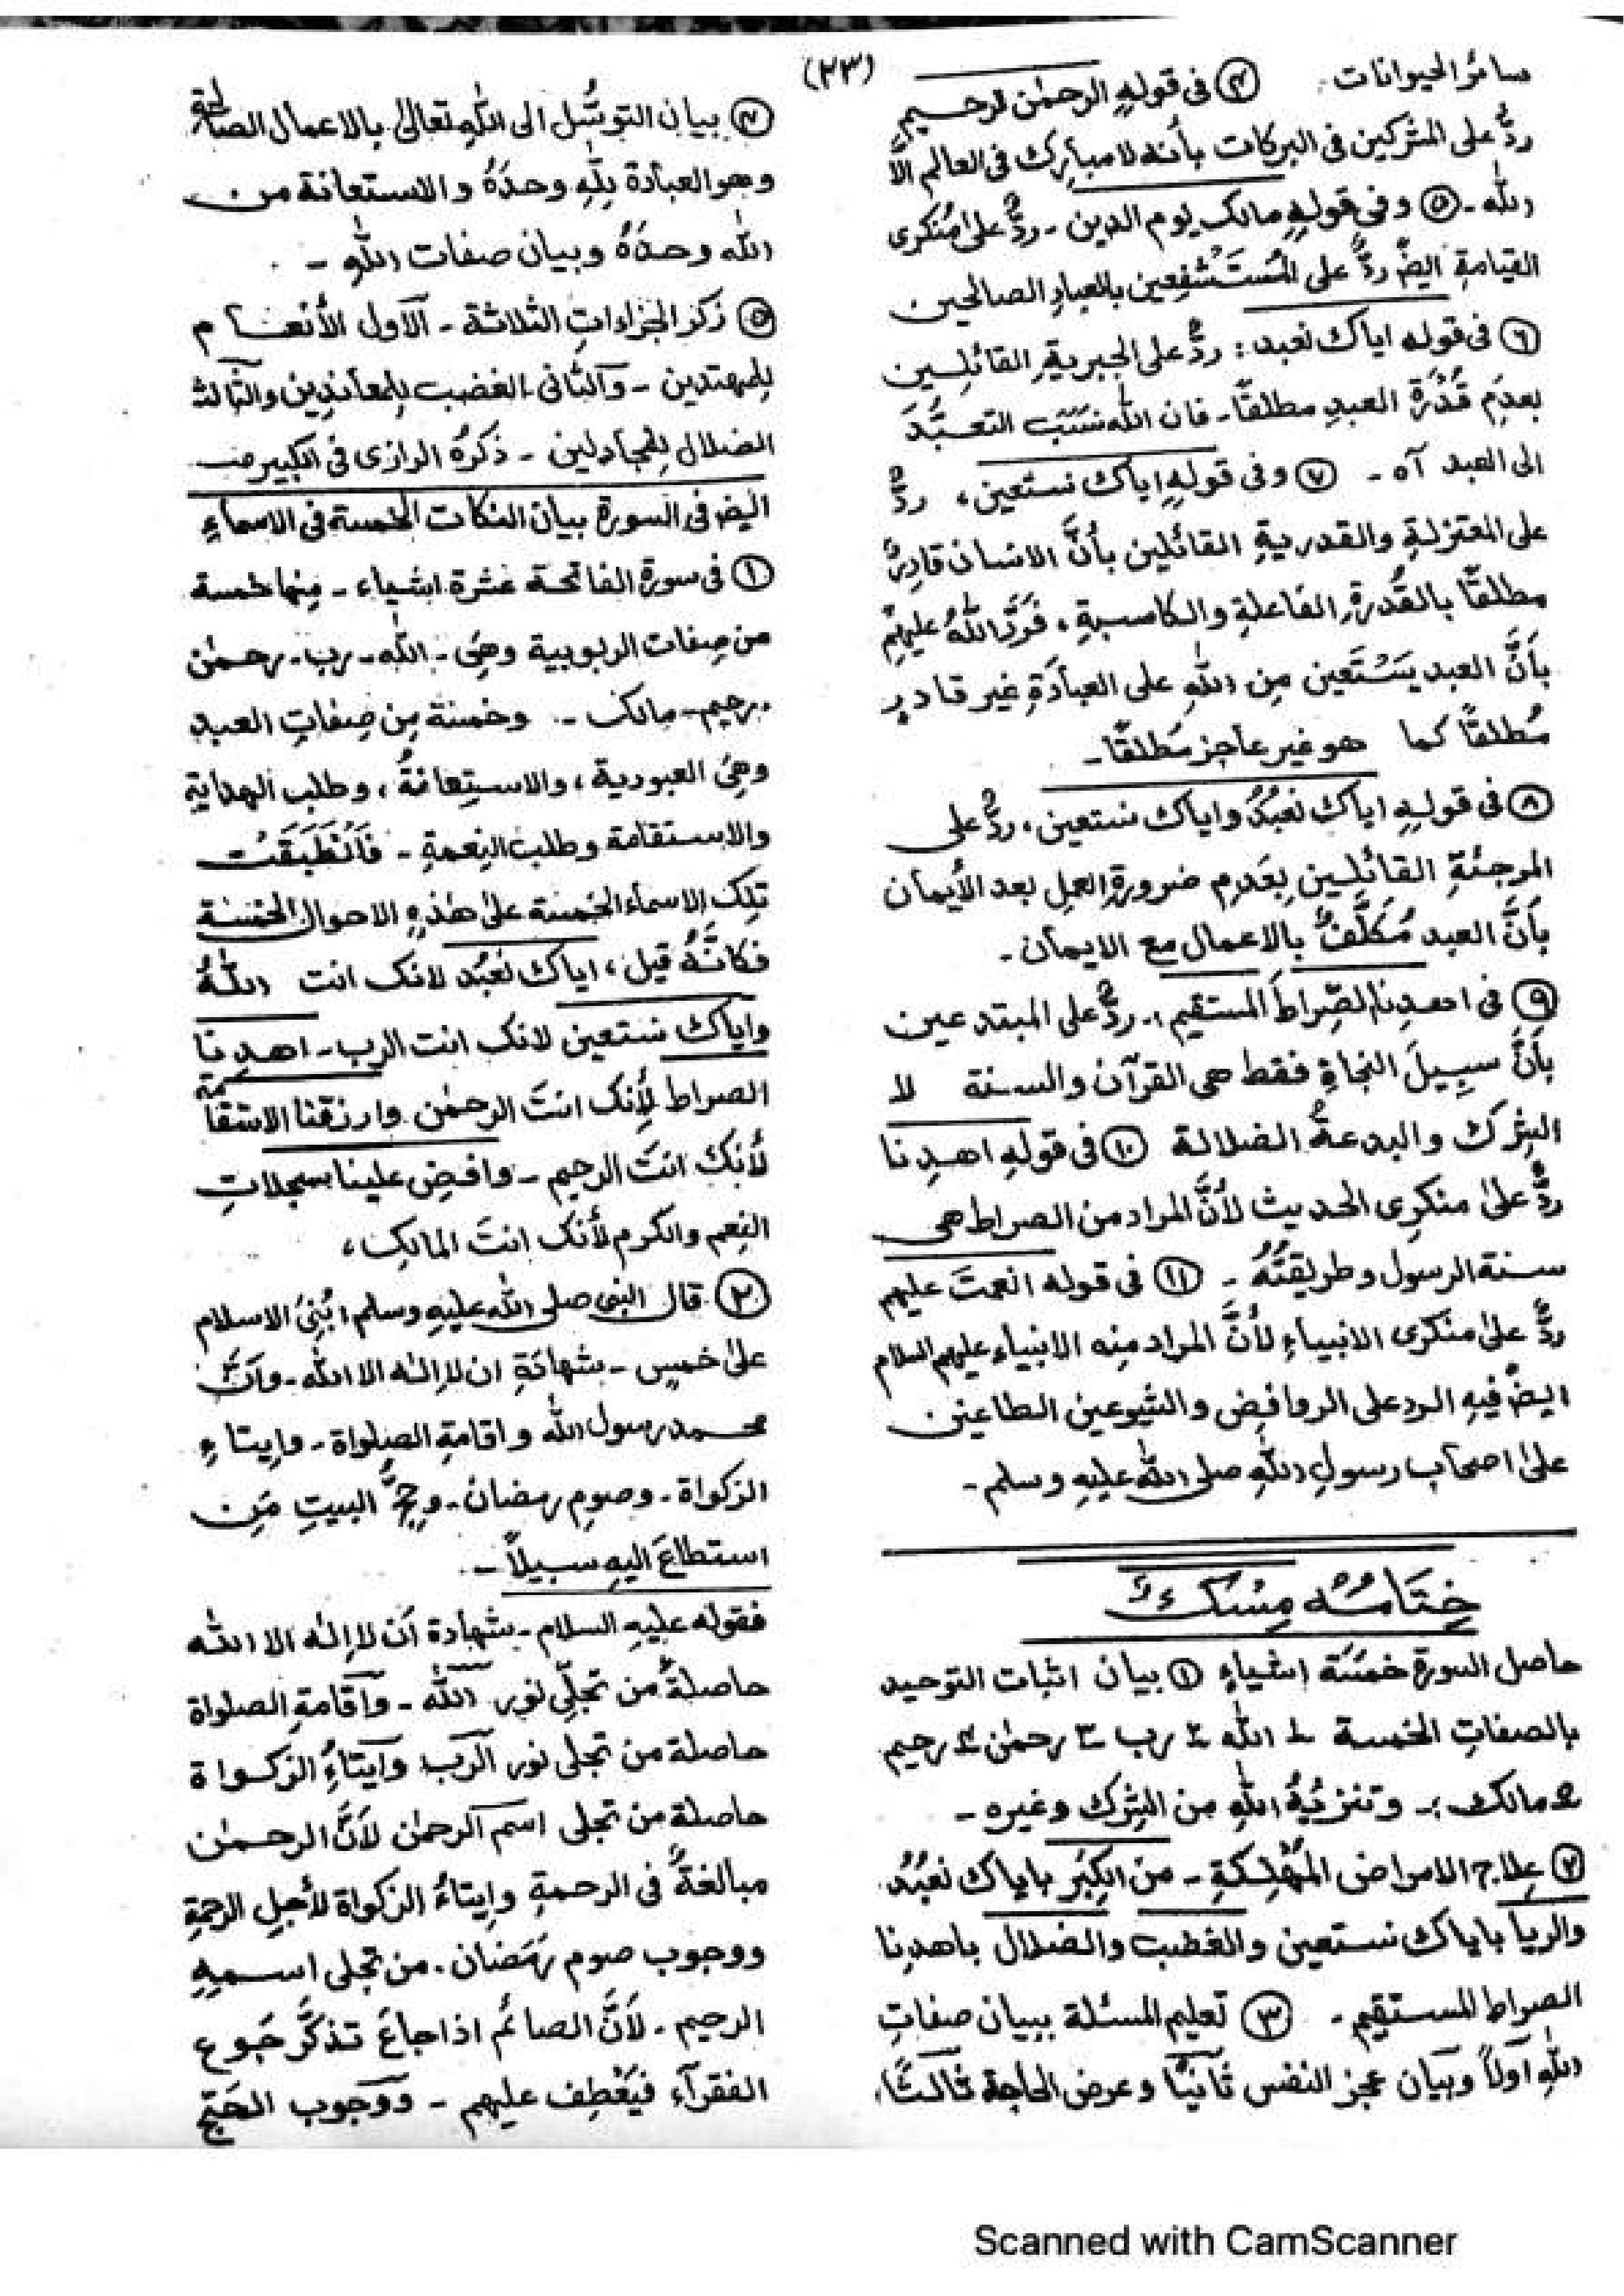 (٢٣)
سائر الحيوانات. ④ فى قولهٖ الرحمٰن الرحيم
ردٌّ على المشركين فى البركات بأنه لا مبارك فى العالم الّا
الله ـ ⑤ وفى قولهٖ مالك يوم الدين ـ ردٌّ على مُنكرى
القيامةِ ايضً ردٌّ على المُستَشْفِعين بالعبادِ الصالحين
⑥ فى قوله اياك نعبد : ردٌّ على الجبريةِ القائلِين
بعدمِ قُدْرَةِ العبدِ مطلقًا ـ فان الله نسَبَ التعبّدَ
الى العبد آه ـ ⑦ وفى قولهٖ اياك نستعين، ردٌّ
على المعتزلةِ والقدريةِ القائلين بأنَّ الانسان قادرٌ
مطلقًا بالقُدرةِ الفاعلةِ والكاسبةِ، فَرَدَّ اللهُ عليهِم
بأنَّ العبد يَسْتَعين مِن اللهِ على العبادَةِ غير قادرٍ
مُطلقًا كما هو غير عاجز مُطلقًا ـ
⑧ فى قولهٖ اياك نعبُدُ واياك نستعين، ردٌّ على
المرجئةِ القائلين بِعَدمِ ضرورةِ العمل بعد الأيمان
بأنَّ العبد مُكلَّفٌ بالاعمال مع الايمان ـ
⑨ فى اهدِنا الصِّراطَ المستقيم، ردٌّ على المبتدعين
بأنَّ سبيلَ النجاةِ فقط هى القرآن والسنة لا
الشرك والبدعةُ الضلالة ⑩ فى قولهٖ اهدِنا
ردٌّ علىٰ منكرِى الحديث لأنَّ المراد من الصراط هى
سنة الرسول وطريقتُهُ ـ ⑪ فى قوله انعمتَ عليهم
ردٌّ علىٰ منكرى الانبياءِ لأنَّ المراد منه الانبياء عليهم السلام
ايضً فيهِ الرد على الروافِض والشيوعين الطاعنين
علىٰ اصحاب رسولِ اللهِ صلى الله عليهِ وسلم ـ
خِتَامُهٗ مِسْكٌ
حاصل السورة خمسَة اشياءٍ ① بيان اثبات التوحيد
بالصفاتِ الخمسة ١ الله ٢ رب ٣ رحمٰن ٤ رحيم
٥ مالك :ـ وتنزيْهُ اللهِ من الشِرك وغيره ـ
② علاج الامراض المُهْلِكةِ ـ من الكِبَر باياك نعبُدُ
والريا باياك نستعين والغضب والضلال باهدِنا
الصراط المستقيم ـ ③ تعليم المسئلة ببيان صفاتِ
اللهِ اَولاً وبَيان عجز النفس ثانيًا وعرض الحاجة ثالثًا،
④ بيان التوسُّل الى اللهِ تعالىٰ بالاعمال الصالحة
وهو العبادة بِلّٰهِ وحدَهٗ والاستعانة من
الله وحدَهٗ وبيان صفات اللهِ ـ
⑤ ذكر الجزاءاتِ الثلاثة ـ الاول الأنعام
للمهتدين ـ والثانى الغضب للمعاندين والثالث
الضلال للمجادلين ـ ذكرهُ الرازى فى الكبير صـ
ايضً فى السورة بيان النكات الخمسة فى الاسماءِ
① فى سورة الفاتحة عشرة اشياء ـ مِنها خمسة
من صِفات الربوبية وهِىَ ـ الله ـ رب ـ رحمٰن
ـ رحيم ـ مالك ـ وخمسَة مِن صِفاتِ العبد
وهىَ العبودية، والاستِعانةُ، وطلب الهدايةِ
والاستقامة وطلب النِعمةِ ـ فَاَنْطَبَقَتْ
تلك الاسماء الخمسة علىٰ هٰذهِ الاحوال الخمسة
فكانَّهٗ قيل، اياك نَعبُد لانك انت اللهُ
واياك نستعين لانك انت الرب ـ اهدِنا
الصراط لِأنك انتَ الرحمٰن وارزقنا الاستقامة
لأنك انتَ الرحيم ـ وافِض علينا سجلاتِ
النِعم والكرم لأنك انتَ المالِك،
② قال النبى صلى الله عليهِ وسلم بُنِىَ الاسلام
علىٰ خمسٍ ـ بشهادَةِ ان لا الٰه الا الله ـ وَاَنَّ
محمد رسول الله واقامةِ الصلواة ـ وايتاءِ
الزكواة ـ وصومِ رمضان ـ وحجِّ البيتِ مَن
استطاعَ اليهِ سبيلاً ـ
فقوله عليهِ السلام ـ بشهادة اَن لا الٰه الا الله
حاصلةٌ من تجلّى نور الله ـ واقامةِ الصلواة
حاصلة من تجلى نور الرب وايتاءُ الزكواة
حاصلة من تجلى اسم الرحمٰن لأنَّ الرحمٰن
مبالغةٌ فى الرحمةِ وايتاءُ الزكواة لأجلِ الرحمةِ
ووجوب صوم رمَضان ـ من تجلى اسمِهٖ
الرحيم ـ لأنَّ الصائم اذا جاعَ تذكّر جوع
الفقرآء فيَعْطِف عليهم ـ ووجوب الحجّ
Scanned with CamScanner